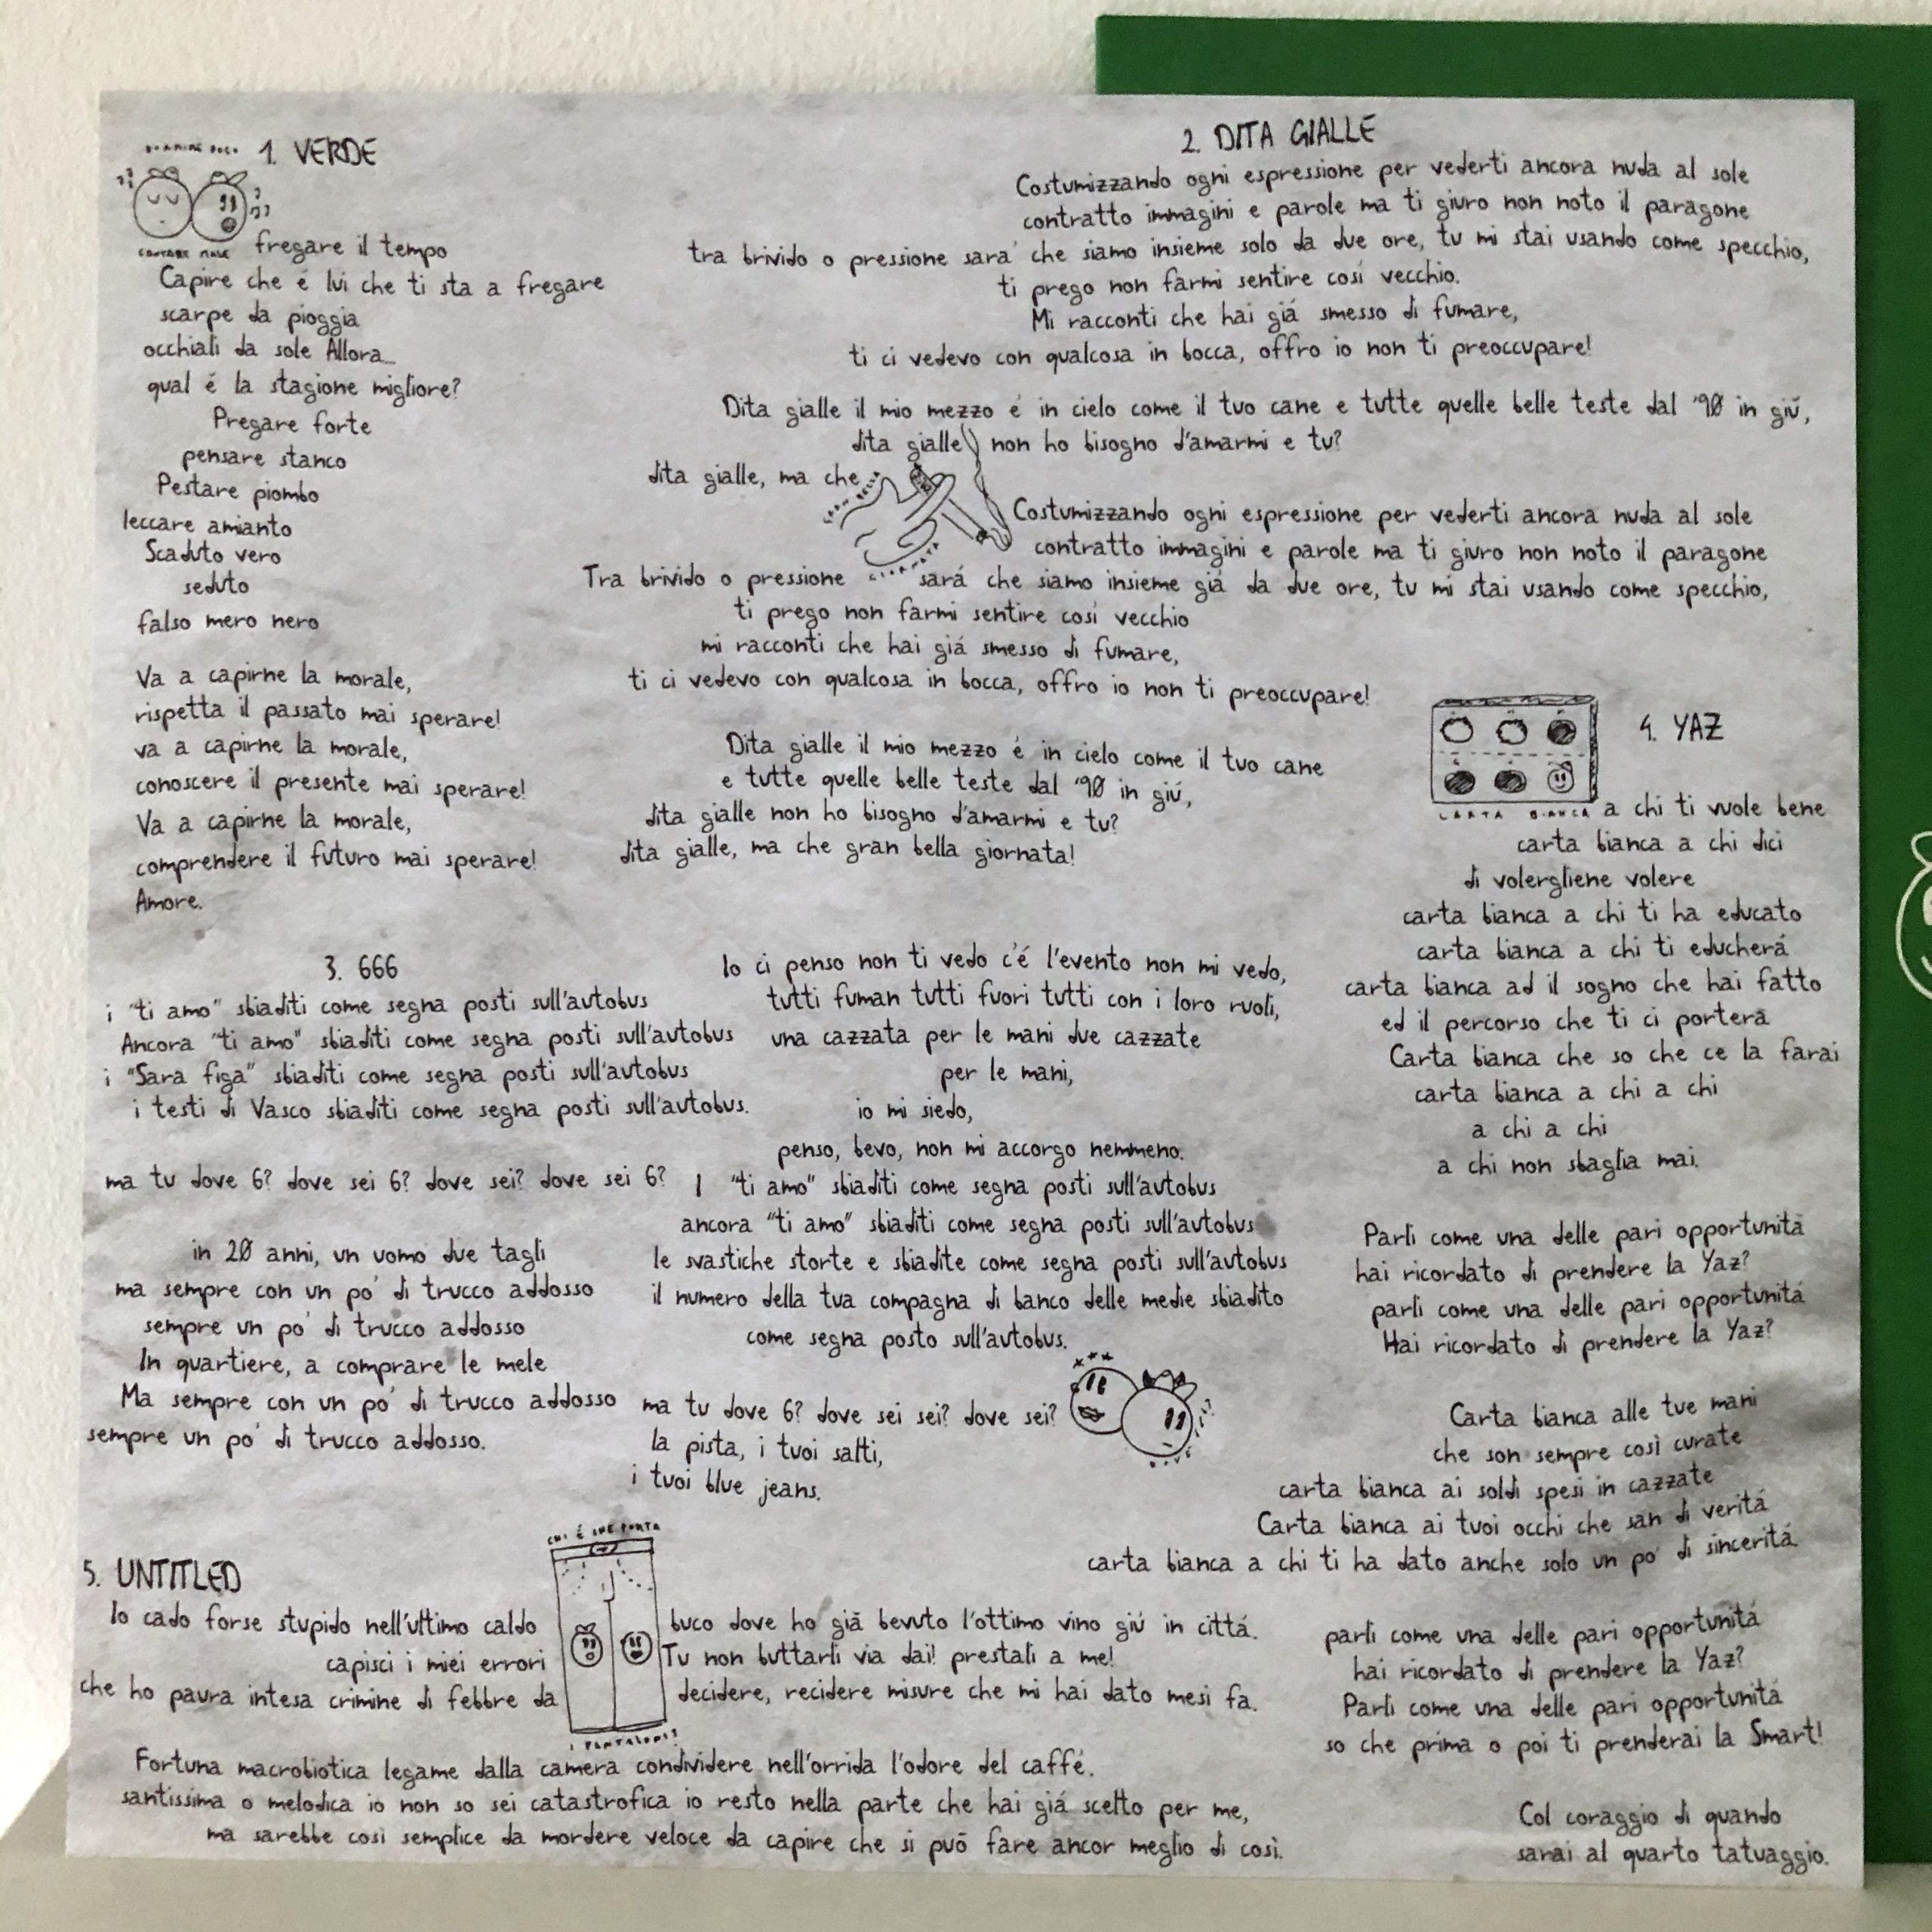 1. VERDE
DORMIRE POCO
CONTARE MALE fregare il tempo
Capire che é lui che ti sta a fregare
scarpe da pioggia
occhiali da sole Allora...
qual é la stagione migliore?
Pregare forte
pensare stanco
Pestare piombo
leccare amianto
Scaduto vero
seduto
falso mero nero
Va a capirne la morale,
rispetta il passato mai sperare!
va a capirne la morale,
conoscere il presente mai sperare!
Va a capirne la morale,
comprendere il futuro mai sperare!
Amore.
2. DITA GIALLE
Costumizzando ogni espressione per vederti ancora nuda al sole
contratto immagini e parole ma ti giuro non noto il paragone
tra brivido o pressione sara' che siamo insieme solo da due ore, tu mi stai usando come specchio,
ti prego non farmi sentire cosí vecchio.
Mi racconti che hai giá smesso di fumare,
ti ci vedevo con qualcosa in bocca, offro io non ti preoccupare!
Dita gialle il mio mezzo é in cielo come il tuo cane e tutte quelle belle teste dal '90 in giú,
dita gialle non ho bisogno d'amarmi e tu?
dita gialle, ma che GRAN BELLA GIORNATA
Costumizzando ogni espressione per vederti ancora nuda al sole
contratto immagini e parole ma ti giuro non noto il paragone
Tra brivido o pressione sará che siamo insieme giá da due ore, tu mi stai usando come specchio,
ti prego non farmi sentire cosí vecchio
mi racconti che hai giá smesso di fumare,
ti ci vedevo con qualcosa in bocca, offro io non ti preoccupare!
Dita gialle il mio mezzo é in cielo come il tuo cane
e tutte quelle belle teste dal '90 in giú,
dita gialle non ho bisogno d'amarmi e tu?
dita gialle, ma che gran bella giornata!
3. 666
i "ti amo" sbiaditi come segna posti sull'autobus
Ancora "ti amo" sbiaditi come segna posti sull'autobus
i "Sara figa" sbiaditi come segna posti sull'autobus
i testi di Vasco sbiaditi come segna posti sull'autobus.
ma tu dove 6? dove sei 6? dove sei? dove sei 6?
in 20 anni, un uomo due tagli
ma sempre con un po' di trucco addosso
sempre un po' di trucco addosso
In quartiere, a comprare le mele
Ma sempre con un po' di trucco addosso
sempre un po' di trucco addosso.
Io ci penso non ti vedo c'é l'evento non mi vedo,
tutti fuman tutti fuori tutti con i loro ruoli,
una cazzata per le mani due cazzate
per le mani,
io mi siedo,
penso, bevo, non mi accorgo nemmeno.
I "ti amo" sbiaditi come segna posti sull'autobus
ancora "ti amo" sbiaditi come segna posti sull'autobus
le svastiche storte e sbiadite come segna posti sull'autobus
il numero della tua compagna di banco delle medie sbiadito
come segna posto sull'autobus.
ma tu dove 6? dove sei sei? dove sei?
la pista, i tuoi salti,
i tuoi blue jeans.
4. YAZ
CARTA BIANCA a chi ti vuole bene
carta bianca a chi dici
di volergliene volere
carta bianca a chi ti ha educato
carta bianca a chi ti educherá
carta bianca ad il sogno che hai fatto
ed il percorso che ti ci porterá
Carta bianca che so che ce la farai
carta bianca a chi a chi
a chi a chi
a chi non sbaglia mai.
Parli come una delle pari opportunitá
hai ricordato di prendere la Yaz?
parli come una delle pari opportunitá
Hai ricordato di prendere la Yaz?
Carta bianca alle tue mani
che son sempre così curate
carta bianca ai soldi spesi in cazzate
Carta bianca ai tuoi occhi che san di veritá
carta bianca a chi ti ha dato anche solo un po' di sinceritá.
parli come una delle pari opportunitá
hai ricordato di prendere la Yaz?
Parli come una delle pari opportunitá
so che prima o poi ti prenderai la Smart!
Col coraggio di quando
sarai al quarto tatuaggio.
5. UNTITLED
CHI É CHE PORTA
I PANTALONI?
Io cado forse stupido nell'ultimo caldo buco dove ho giá bevuto l'ottimo vino giú in cittá.
capisci i miei errori Tu non buttarli via dai! prestali a me!
che ho paura intesa crimine di febbre da decidere, recidere misure che mi hai dato mesi fa.
Fortuna macrobiotica legame dalla camera condividere nell'orrida l'odore del caffé.
santissima o melodica io non so sei catastrofica io resto nella parte che hai giá scelto per me,
ma sarebbe così semplice da mordere veloce da capire che si può fare ancor meglio di così.